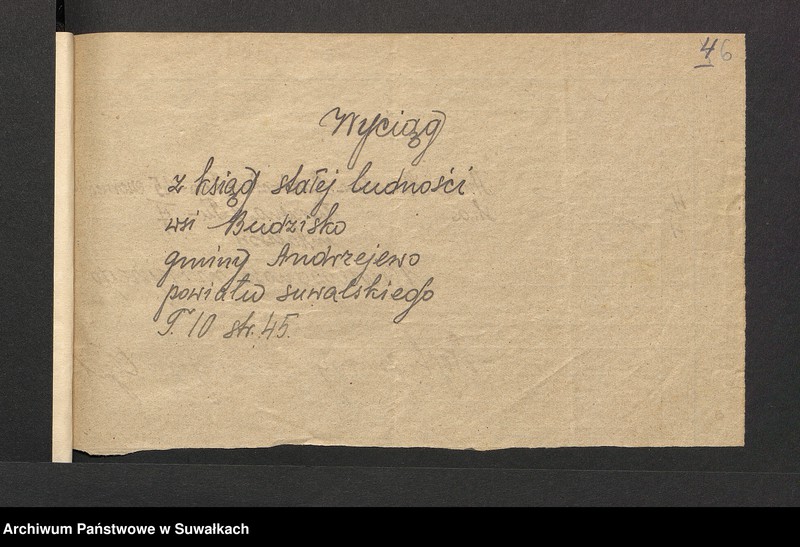 46
Wyciąg
z ksiąg stałej ludności
wsi Budzisko
gminy Andrzejewo
powiatu suwalskiego
T. 10 str. 45.
Archiwum Państwowe w Suwałkach